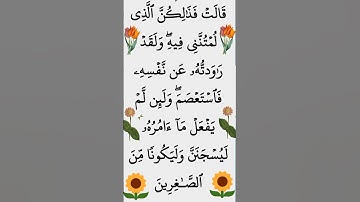 قَالَتْ فَذَٰلِكُنَّ ٱلَّذِى
لُمْتُنَّنِى فِيهِ ۖ وَلَقَدْ
رَٰوَدتُّهُۥ عَن نَّفْسِهِۦ
فَٱسْتَعْصَمَ ۖ وَلَئِن لَّمْ
يَفْعَلْ مَآ ءَامُرُهُۥ
لَيُسْجَنَنَّ وَلَيَكُونًا مِّنَ
ٱلصَّٰغِرِينَ